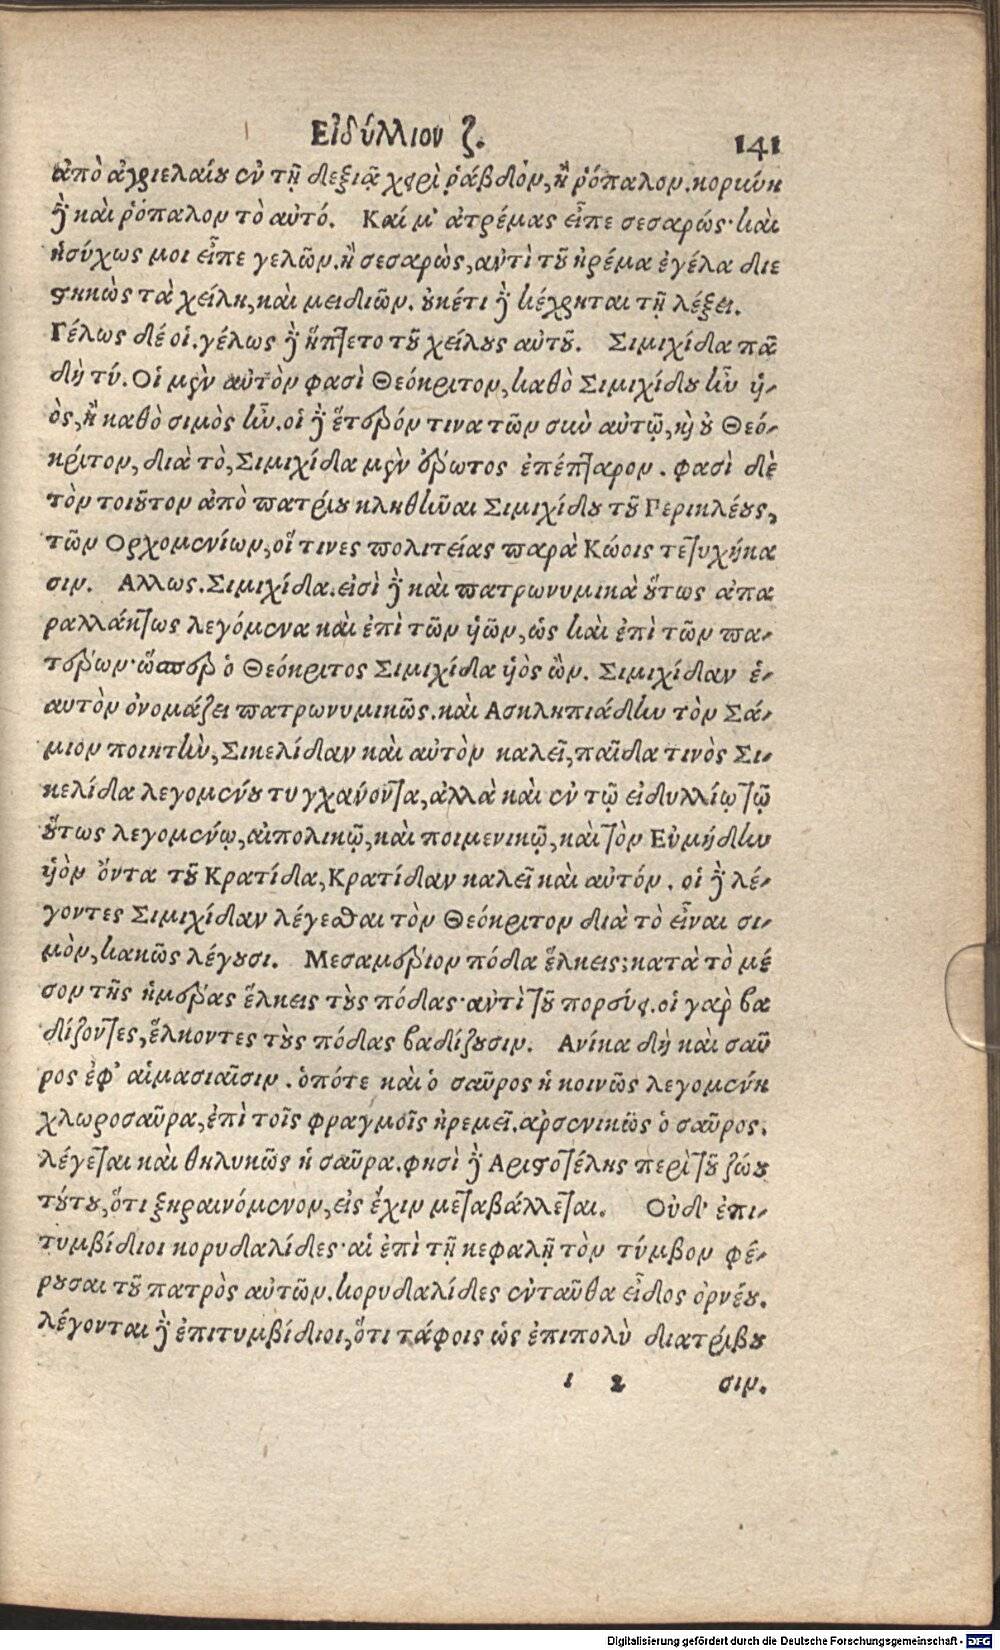 Εἰδύλλιον ζ. 141
ἀπὸ ἀγριελαίου ἐν τῇ δεξιᾷ χειρὶ ῥάβδον, ἢ ῥόπαλον. κορύνη
δὲ καὶ ῥόπαλον τὸ αὐτό. Καί μ' ἀτρέμας εἶπε σεσαρώς· καὶ
ἡσύχως μοι εἶπε γελῶν. ἢ σεσαρὼς, ἀντὶ τοῦ ἠρέμα ἐγέλα διε
στηκὼς τὰ χείλη, καὶ μειδιῶν. οὐκέτι δὲ κέχρηται τῇ λέξει.
Γέλως δέ οἱ. γέλως δὲ ἥπτετο τοῦ χείλους αὐτοῦ. Σιμιχίδα πᾶ
δὴ τύ. Οἱ μὲν αὐτὸν φασὶ Θεόκριτον, καθὸ Σιμιχίδου ἦν ὑι-
ὸς, ἢ καθὸ σιμὸς ἦν. οἱ δὲ ἕτερόν τινα τῶν σὺν αὐτῷ, καὶ οὐ Θεό-
κριτον, διὰ τὸ, Σιμιχίδα μὲν ἔρωτες ἐπέπταρον. φασὶ δὲ
τὸν τοιοῦτον ἀπὸ πατρίου κληθῆναι Σιμιχίδου τοῦ Περικλέους,
τῶν Ορχομενίων, οἵ τινες πολιτείας παρὰ Κώοις τετυχήκα
σιν. Αλλως. Σιμιχίδα. εἰσὶ δὲ καὶ πατρωνυμικὰ οὕτως ἀπα
ραλλάκτως λεγόμενα καὶ ἐπὶ τῶν ὑιῶν, ὡς καὶ ἐπὶ τῶν πα-
τέρων· ὥσπερ ὁ Θεόκριτος Σιμιχίδα ὑιὸς ὢν. Σιμιχίδαν ἑ-
αυτὸν ὀνομάζει πατρωνυμικῶς. καὶ Ασκληπιάδην τὸν Σά-
μιον ποιητὴν, Σικελίδαν καὶ αὐτὸν καλεῖ, παῖδα τινὸς Σι-
κελίδα λεγομένου τυγχάνοντα, ἀλλὰ καὶ ἐν τῷ εἰδυλλίῳ τῷ
οὕτως λεγομένῳ, αἰπολικῷ, καὶ ποιμενικῷ, καὶ τὸν Εὐμήδην
ὑιὸν ὄντα τοῦ Κρατίδα, Κρατίδαν καλεῖ καὶ αὐτόν. οἱ δὲ λέ-
γοντες Σιμιχίδαν λέγεσθαι τὸν Θεόκριτον διὰ τὸ εἶναι σι-
μὸν, κακῶς λέγουσι. Μεσαμέριον πόδα ἕλκεις; κατὰ τὸ μέ
σον τῆς ἡμέρας ἕλκεις τοὺς πόδας· ἀντὶ τοῦ πορεύῃ. οἱ γὰρ βα
δίζοντες, ἕλκοντες τοὺς πόδας βαδίζουσιν. Ανίκα δὴ καὶ σαῦ
ρος ἐφ' αἱμασιαῖσιν. ὁπότε καὶ ὁ σαῦρος ἡ κοινῶς λεγομένη
χλωροσαῦρα, ἐπὶ τοῖς φραγμοῖς ἠρεμεῖ. ἀρσενικῶς ὁ σαῦρος.
λέγεται καὶ θηλυκῶς ἡ σαῦρα. φησὶ δὲ Αριστοτέλης περὶ τοῦ ζώου
τούτου, ὅτι ξηραινόμενον, εἰς ἔχιν μεταβάλλεται. Οὐδ' ἐπι-
τυμβίδιοι κορυδαλίδες· αἱ ἐπὶ τῇ κεφαλῇ τὸν τύμβον φέ-
ρουσαι τοῦ πατρὸς αὐτῶν. κορυδαλίδες ἐνταῦθα εἶδος ὀρνέου.
λέγονται δὲ ἐπιτυμβίδιοι, ὅτι τάφοις ὡς ἐπιπολὺ διατρίβου
ι 2 σιν.
Digitalisierung gefördert durch die Deutsche Forschungsgemeinschaft - DFG